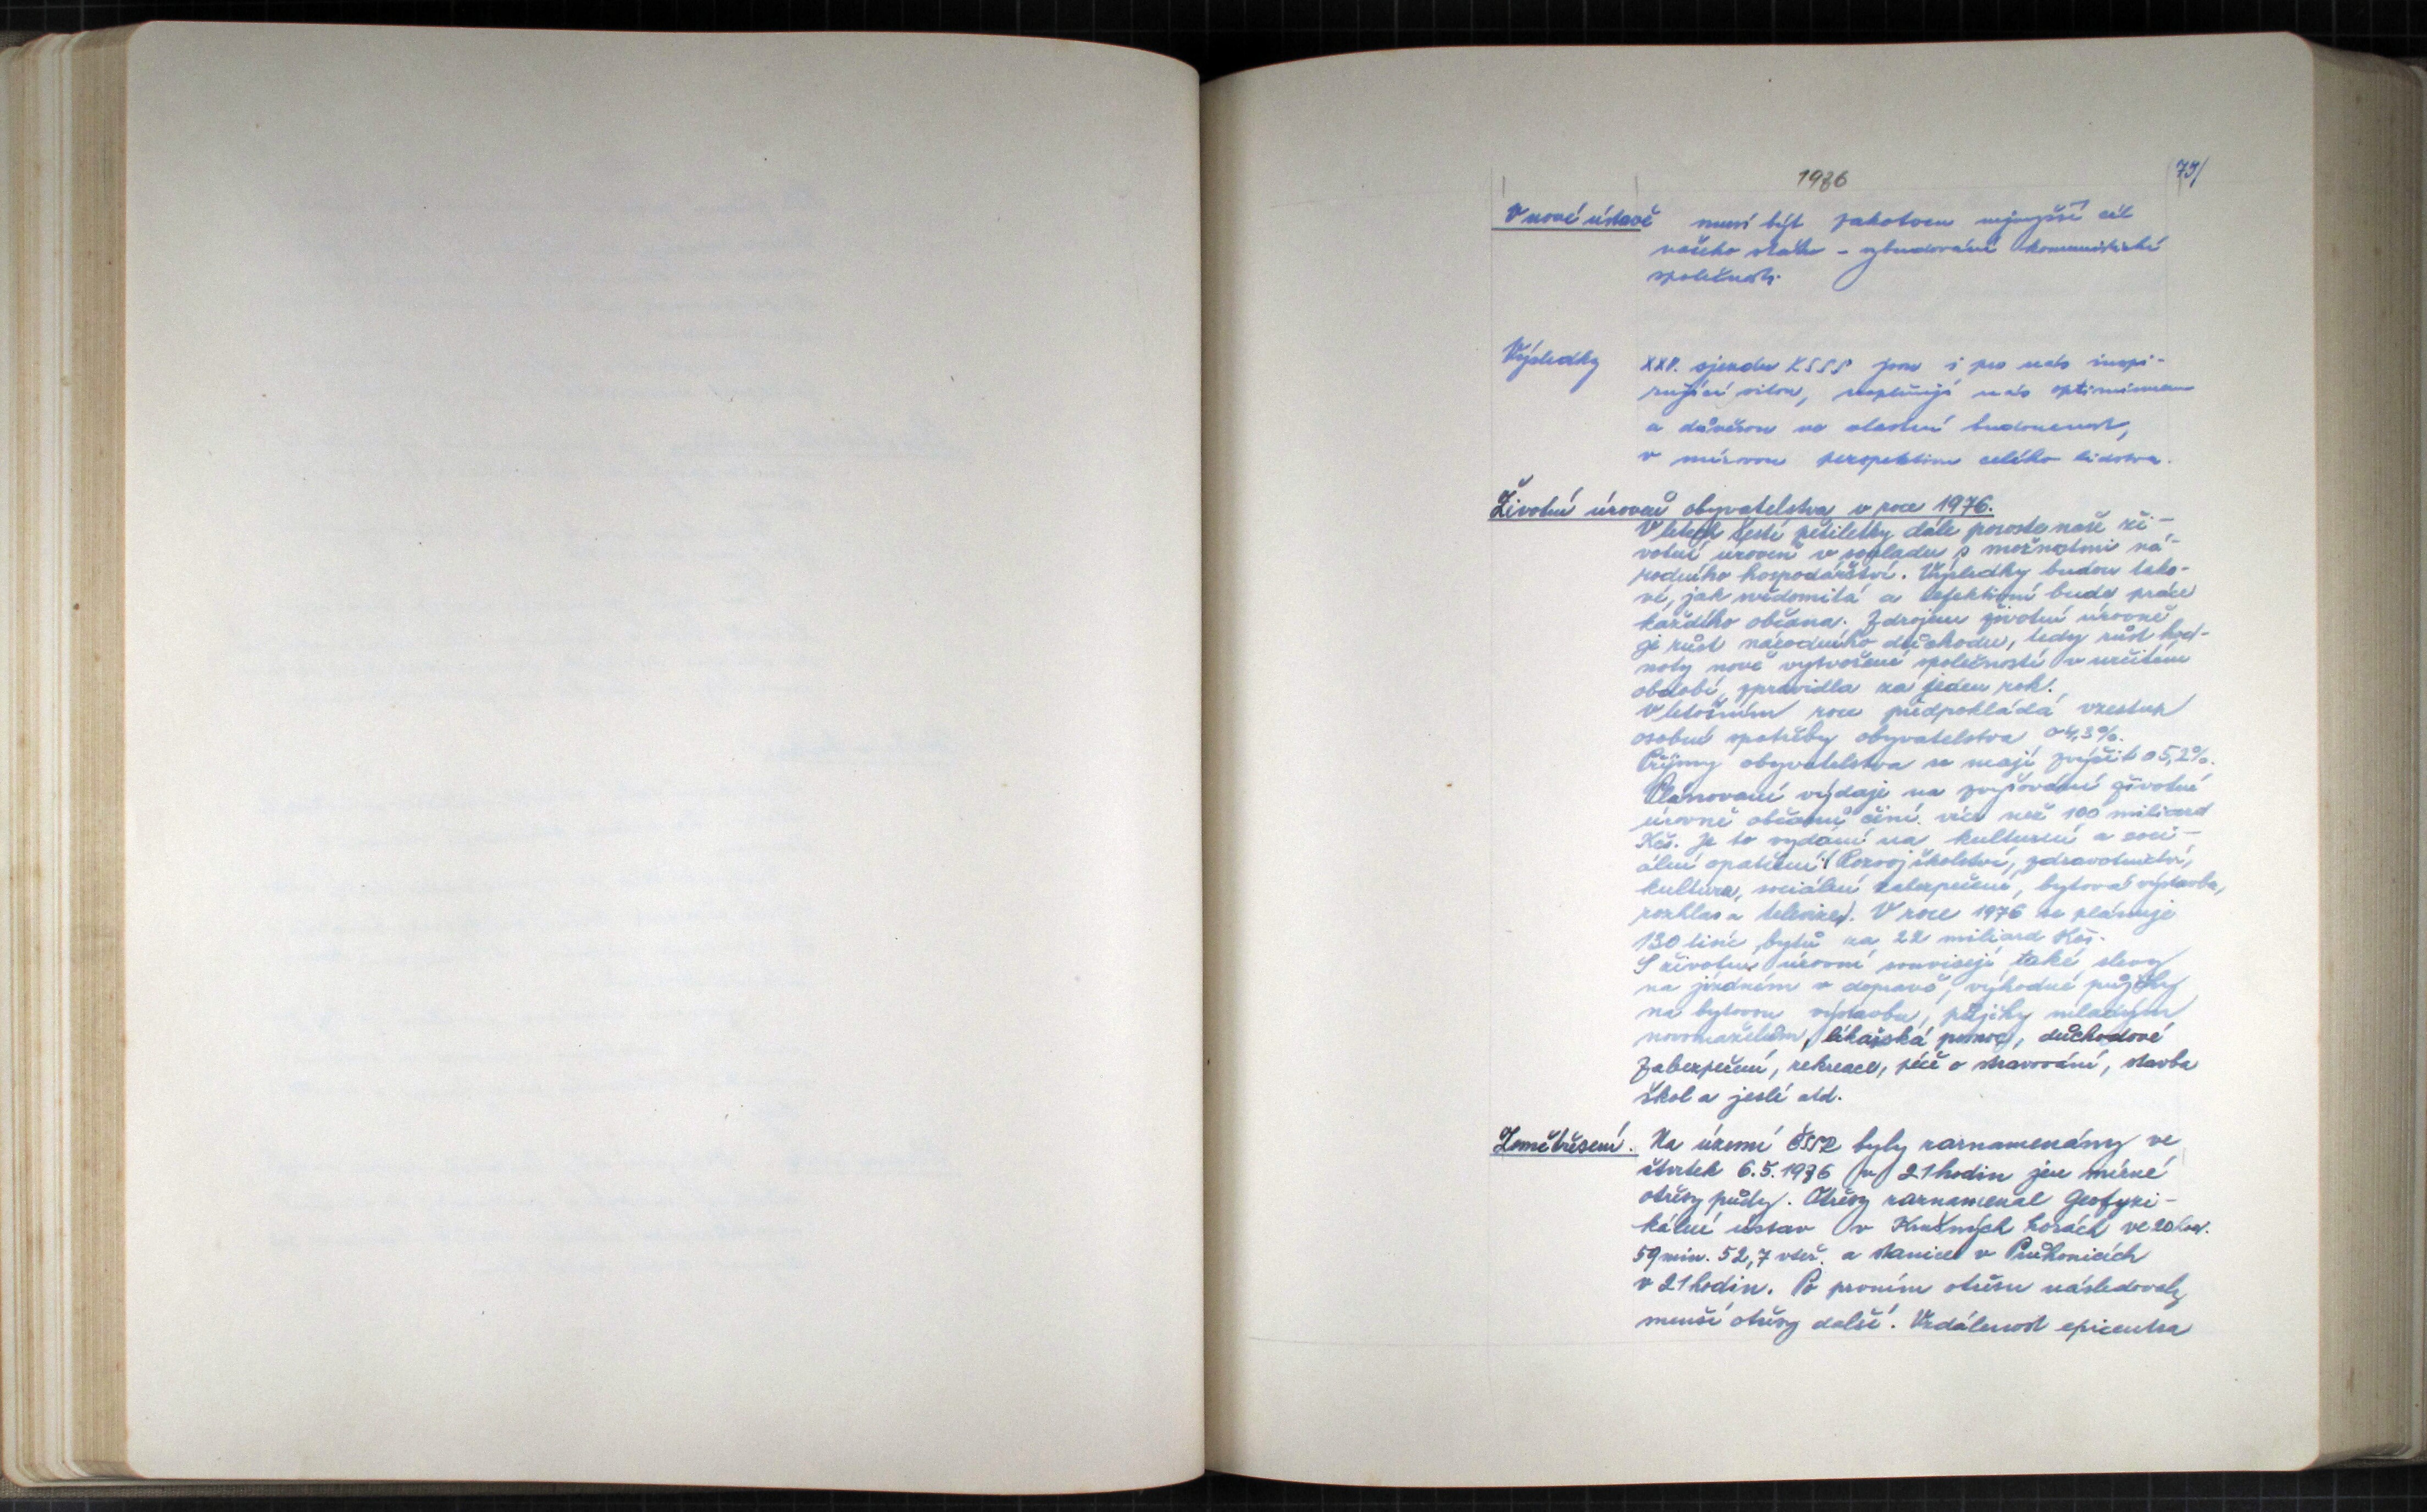 1976
73/
V nové ústavě musí být zakotven nejvyšší cíl
našeho státu - vybudování komunistické
společnosti.
Výsledky XXV. sjezdu KSSS jsou i pro nás inspi-
rující silou, naplňují nás optimismem
a důvěrou ve vlastní budoucnost,
v mírovou perspektivu celého lidstva.
Životní úroveň obyvatelstva v roce 1976.
V letech šesté pětiletky dále poroste naše ži-
votní úroveň v souladu s možnostmi ná-
rodního hospodářství. Výsledky budou tako-
vé, jak svědomitá a efektivní bude práce
každého občana. Zdrojem životní úrovně
je růst národního důchodu, tedy růst hod-
noty nově vytvořené společností v určitém
období, zpravidla za jeden rok.
V letošním roce předpokládá vzestup
osobní spotřeby obyvatelstva o 4,3%.
Příjmy obyvatelstva se mají zvýšit o 5,2%.
Plánované výdaje na zvyšování životní
úrovně občanů činí více než 100 miliard
Kčs. Je to vydání na kulturní a soci-
ální opatření (Rozvoj školství, zdravotnictví,
kultura, sociální zabezpečení, bytová výstavba,
rozhlas a televize). V roce 1976 se plánuje
130 tisíc bytů za 22 miliard Kčs.
S životní úrovní souvisejí také slevy
na jízdném v dopravě, výhodné půjčky
na bytovou výstavbu, půjčky mladým
novomanželům, lékařská pomoc, důchodové
zabezpečení, rekreace, péče o stravování, stavba
škol a jeslí atd.
Zemětřesení. Na území ČSSR byly zaznamenány ve
čtvrtek 6.5.1976 v 21 hodin jen mírné
otřesy půdy. Otřesy zaznamenal Geofyzi-
kální ústav v Krušných horách ve 20 hod.
59 min. 52,7 vteř. a stanice v Průhonicích
v 21 hodin. Po prvním otřesu následovaly
menší otřesy další. Vzdálenost epicentra